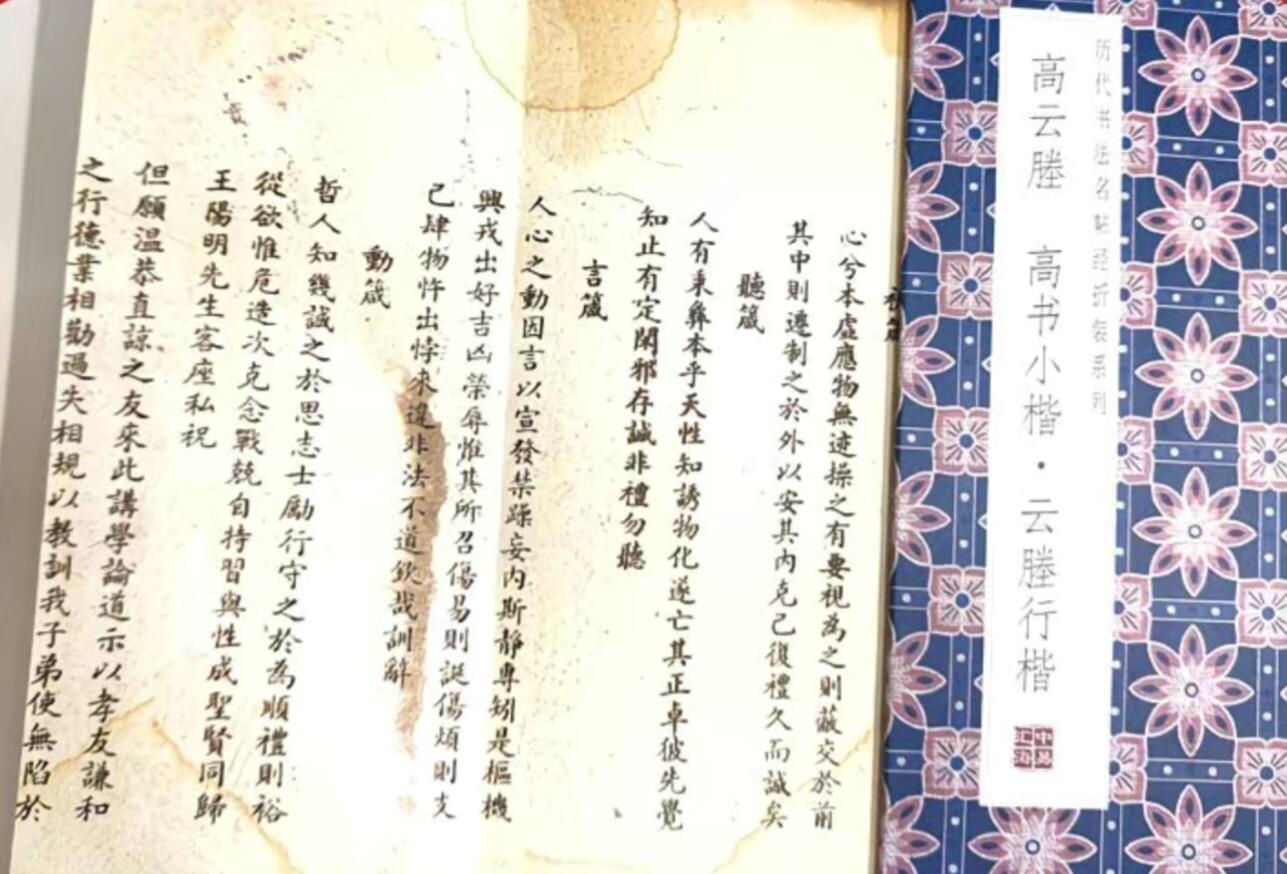 历代书法名帖经折装系列
高云塍 高书小楷·云塍行楷
中易汇海
心兮本虛應物無迹操之有要視為之則蔽交於前
其中則遷制之於外以安其內克己復禮久而誠矣
聽箴
人有秉彝本乎天性知誘物化遂亡其正卓彼先覺
知止有定閑邪存誠非禮勿聽
言箴
人心之動因言以宣發禁躁妄內斯靜專矧是樞機
興戎出好吉凶榮辱惟其所召傷易則誕傷煩則支
己肆物忤出悖來違非法不道欽哉訓辭
動箴
哲人知幾誠之於思志士勵行守之於為順禮則裕
從欲惟危造次克念戰兢自持習與性成聖賢同歸
王陽明先生客座私祝
但願溫恭直諒之友來此講學論道示以孝友謙和
之行德業相勸過失相規以教訓我子弟使無陷於